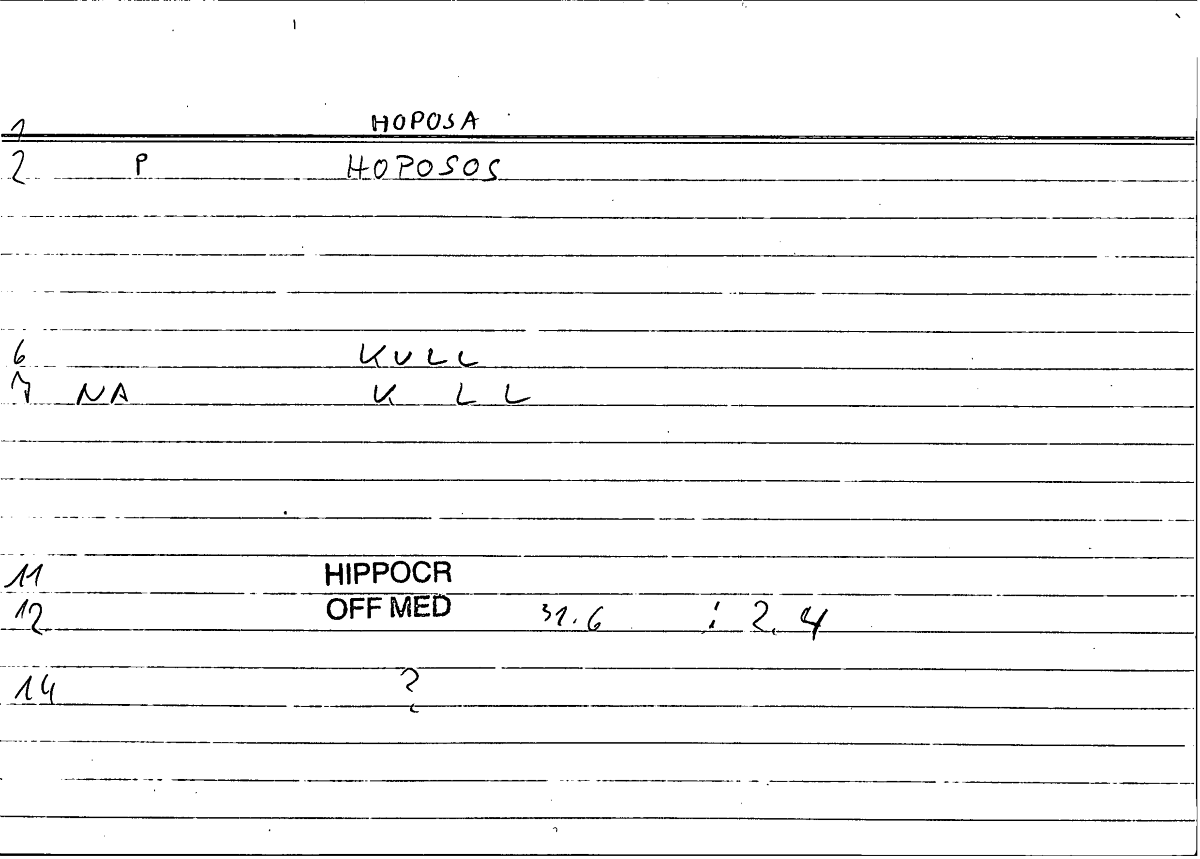 1 HOPOSA
2 P HOPOSOS
6 KULL
7 NA K L L
11 HIPPOCR
12 OFF MED 31.6 : 2. 4
14 ?